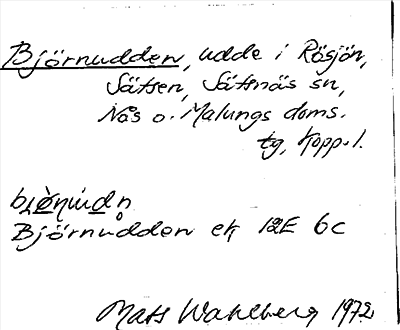 Björnudden, udde i Rösjön,
Sätsen, Säfsnäs sn,
Nås o. Malungs doms.
tg, Kopp. l.
Björnudden ek 12E 6c
Mats Wahlberg 1972